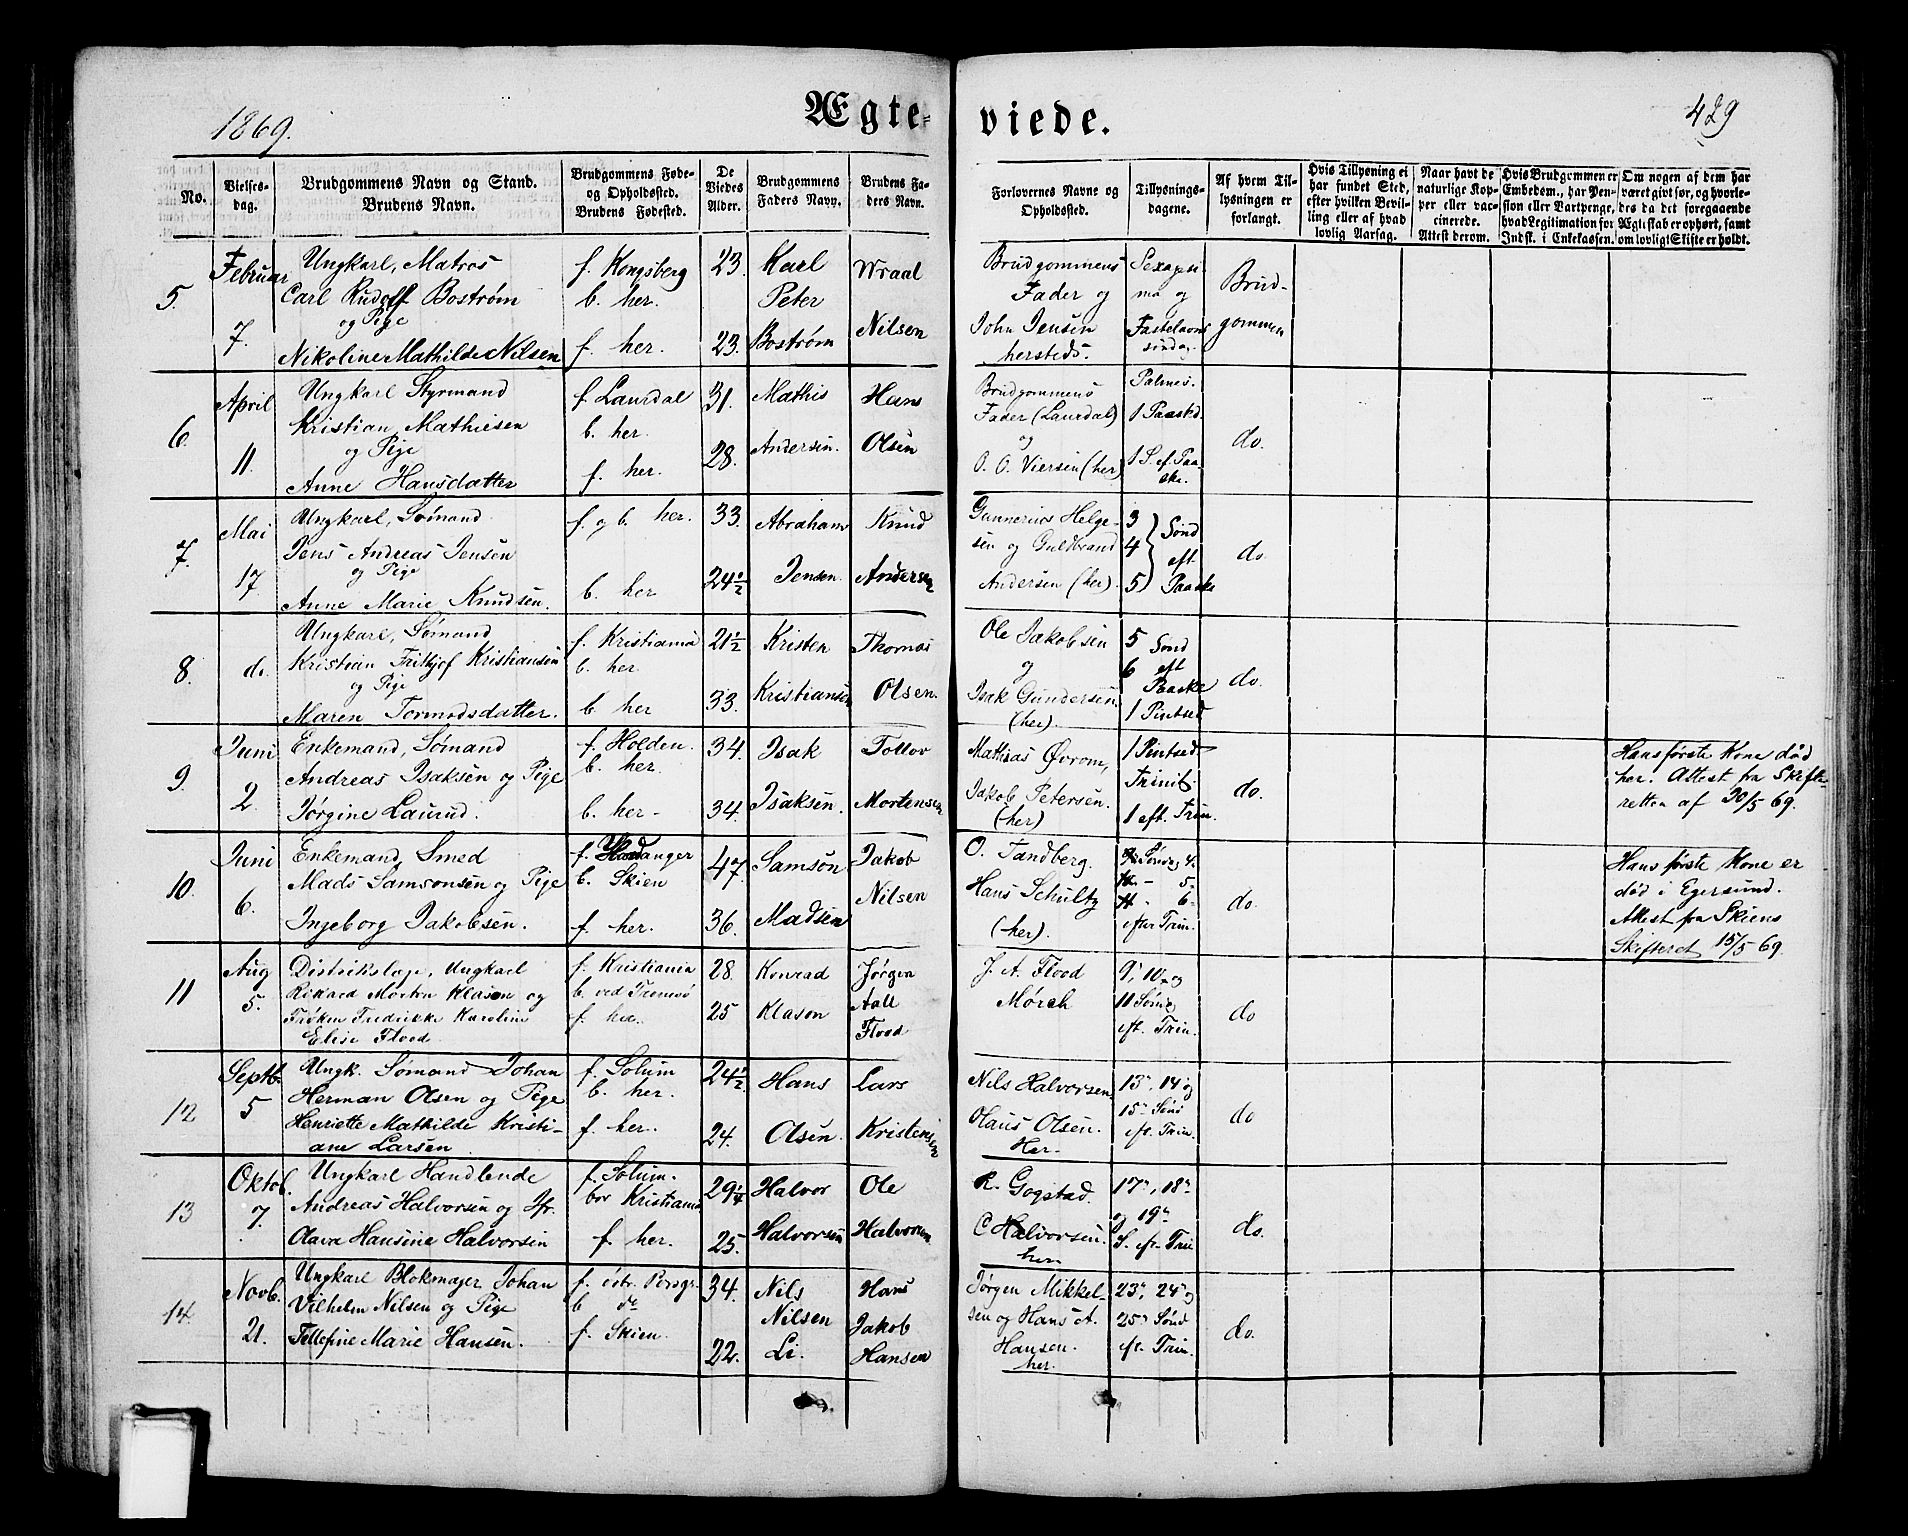 1869.
Ægte-
viede.
429
No.
Vielses-
dag.
Brudgommens Navn og Stand.
Brudens Navn.
Brudgommens Føde-
og Opholdssted.
Brudens Fødested.
De
Viedes
Alder.
Brudgommens
Faders Navn.
Brudens Fa-
ders Navn.
Forlovernes Navne og
Opholdssted.
Tillysnings-
dagene.
Af hvem Til-
lysningen er
forlangt.
Hvis Tillysning ei
har fundet Sted,
efter hvilken Bevil-
ling eller af hvad
lovlig Aarsag.
Naar havt de
naturlige Kop-
per eller vac-
cinerede.
Attest derom.
Hvis Brudgommen er
Embedsm., har Pen-
sion eller Vartpenge,
hvad Legitimation for
Indsk. i Enkekassen.
Om nogen af dem har
været gift før, og hvorle-
des da det foregaaende
Ægteskab er ophørt, samt
om lovligt Skifte er holdt.
5.
Februar
7.
Ungkarl, Matros
Carl Rudolf Bostrøm
og Pige
Nikoline Mathilde Nilsen
f. Kongsberg
b. her.
f. her.
23.
23.
Karl
Peter
Bostrøm
Wraal
Nilsen
Brudgommens
Fader og
John Jensen
hersteds.
Sexagesi-
ma og
Fastelavns
søndag
Brud-
gommen
6.
April
11.
Ungkarl Styrmand
Kristian Mathiesen
og Pige
Anne Hansdatter
f. Laurdal
b. her.
f. her.
31.
28.
Mathis
Andersen.
Hans
Olsen
Brudgommens
Fader (Laurdal)
og
O. O. Viersen (her)
Palmes.
1 Paaskd.
1 S. ef. Paa-
ske.
do.
7.
Mai
17
Ungkarl, Sømand
Jens Andreas Jensen
og Pige
Anne Marie Knudsen.
f. og b. her.
b. her
33.
24½
Abraham
Jensen.
Knud
Andersen
Gunnerius Helge-
sen og Guldbrand
Andersen (her)
3
4
5
Sønd
eft
Paaske
do.
8.
do.
Ungkarl, Sømand
Kristian Frithjof Kristiansen
og Pige
Maren Tormodsdatter.
f. Kristiania
b. her.
b. her
21½
33.
Kristen
Kristiansen
Thomas
Olsen.
Ole Jakobsen
og
Isak Gundersen.
(her).
5
6
Sønd
eft
Paaske
1 Pintsed.
do.
9.
Juni
2.
Enkemand, Sømand
Andreas Isaksen og Pige
Jørgine Laurud.
f. Holden.
b. her.
b. her
34.
34.
Isak
Isaksen.
Tollov
Mortensen
Mathias Øvrom,
Jakob Petersen.
(her)
1 Pintsed.
Trinit.
1 eft. Trin.
do.
Hans første Kone død
her. Attest fra Skifte-
retten af 30/5 69.
10.
Juni
6.
Enkemand, Smed
Mads Samsonsen og Pige
Ingeborg Jakobsen.
b. Skien
f. her.
47.
36.
Samson
Madsen
Jakob
Nilsen
O. Tandberg.
Hans Schultz
(her).
Søndag 4.
5.
6.
efter Trin.
do.
Hans første Kone er
død i Egersund.
Attest fra Skiens
Skifteret 15/5 69.
11
Aug
5.
Distriktslæge, Ungkarl
Rikard Morten Klason og
Frøken Fredrikke Karoline
Elise Flood
f. Kristiania
b. ved Tromsø
f. her.
28.
25
Konrad
Klason
Jørgen
Aall
Flood
J. A. Flood
Mørch
9, 10 og
11 Sønd
eft. Trin.
do
12
Septb.
5
Ungk. Sømand Johan
Herman Olsen og Pige
Henriette Mathilde Kristi-
ane Larsen
f. Solum
b. her.
f. her.
24½
24.
Hans
Olsen.
Lars
Kristensen
Nils Halvorsen.
Hans Olsen.
Her.
13de, 14 og
15de Sønd
eft. Trin.
do
13
Oktob.
7.
Ungkarl Handlende
Andreas Halvorsen og Jfr.
Aava Hansine Halvorsen
f. Solum.
bor Kristiania
f. her.
29¼
25.
Halvor
Halvorsen
Ole
Halvorsen
R. Gogstad.
C Halvorsen.
her
17de, 18de
og 19de
S. eft. Trin
do.
14.
Novb.
21.
Ungkarl Blokmager Johan
Vilhelm Nilsen og Pige
Tellefine Marie Hansen.
f. østr. Porsgr.
b do
f. Skien.
34.
22.
Nils
Nilsen
Li.
Hans
Jakob
Hansen
Jørgen Mikkel-
sen og Hans A.
Hansen.
her.
23de, 24de og
25de Sønd
eft. Trin.
do.